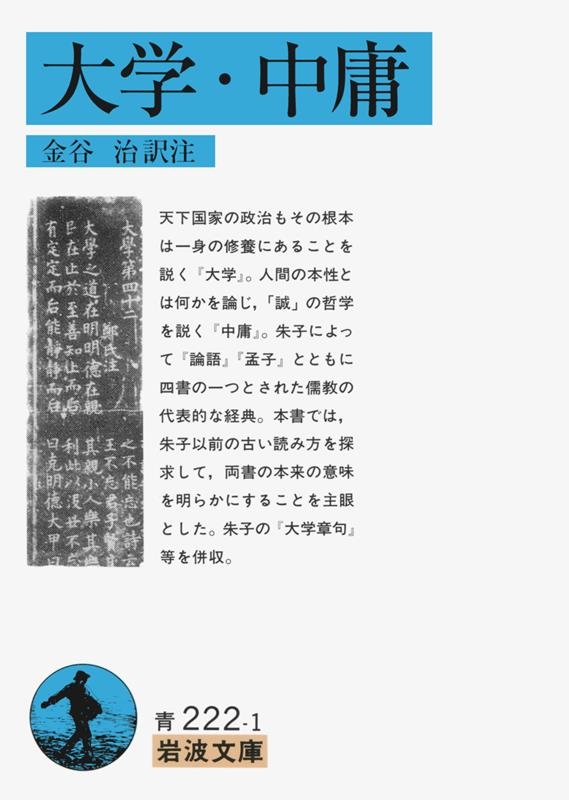 大学・中庸
金谷 治訳注
天下国家の政治もその根本
は一身の修養にあることを
説く『大学』。人間の本性と
は何かを論じ,「誠」の哲学
を説く『中庸』。朱子によっ
て『論語』『孟子』とともに
四書の一つとされた儒教の
代表的な経典。本書では,
朱子以前の古い読み方を探
求して,両書の本来の意味
を明らかにすることを主眼
とした。朱子の『大学章句』
等を併収。
大學第四十二
鄭氏注
大學之道在明明德在親
民在止於至善知止而后
有定定而后能靜靜而后
之不能忘也詩云
王不忘君子賢
其親小人樂其樂
利此以沒世不忘
曰克明德大甲曰
青 222-1
岩波文庫